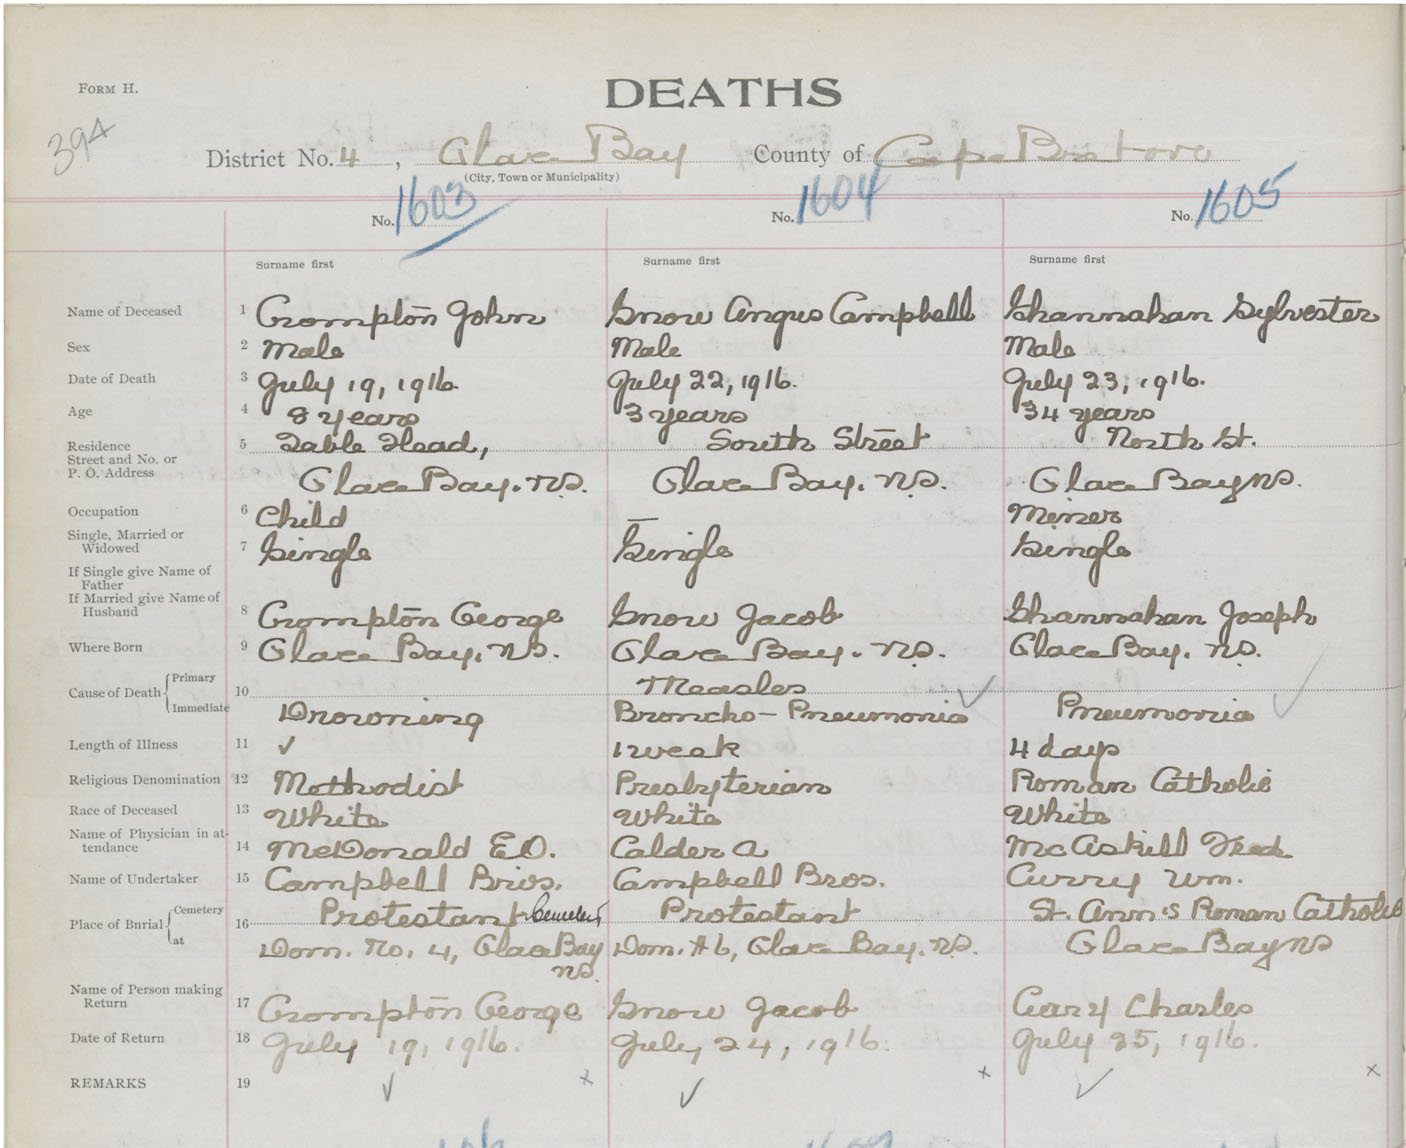 FORM H.
DEATHS
394
District No. 4, Glace Bay County of Cape Breton
(City, Town or Municipality)
No. 1603 No. 1604 No. 1605
Surname first Surname first Surname first
Name of Deceased 1 Crompton John Snow Angus Campbell Shannahan Sylvester
Sex 2 Male Male Male
Date of Death 3 July 19, 1916. July 22, 1916. July 23, 1916.
Age 4 8 years 3 years 34 years
Residence 5 Table Head, South Street North St.
Street and No. or
P. O. Address Glace Bay. N.S. Glace Bay. N.S. Glace Bay NS.
Occupation 6 Child — Miner
Single, Married or
Widowed 7 Single Single Single
If Single give Name of
Father
If Married give Name of
Husband 8 Crompton George Snow Jacob Shannahan Joseph
Where Born 9 Glace Bay. NS. Glace Bay. N.S. Glace Bay. N.S.
Cause of Death Primary 10 Measles
Immediate Drowning Broncho-Pneumonia Pneumonia
Length of Illness 11 ✓ 1 week 4 days
Religious Denomination 12 Methodist Presbyterian Roman Catholic
Race of Deceased 13 White White White
Name of Physician in at-
tendance 14 McDonald E.O. Calder A McAskill Fred
Name of Undertaker 15 Campbell Bros. Campbell Bros. Curry Wm.
Place of Burial Cemetery 16 Protestant Cemetery Protestant St. Ann's Roman Catholic
at Dom. No. 4, Glace Bay NS. Dom. #6, Glace Bay. N.S. Glace Bay NS
Name of Person making
Return 17 Crompton George Snow Jacob Curry Charles
Date of Return 18 July 19, 1916. July 24, 1916. July 25, 1916.
REMARKS 19 ✓ x ✓ x ✓ x